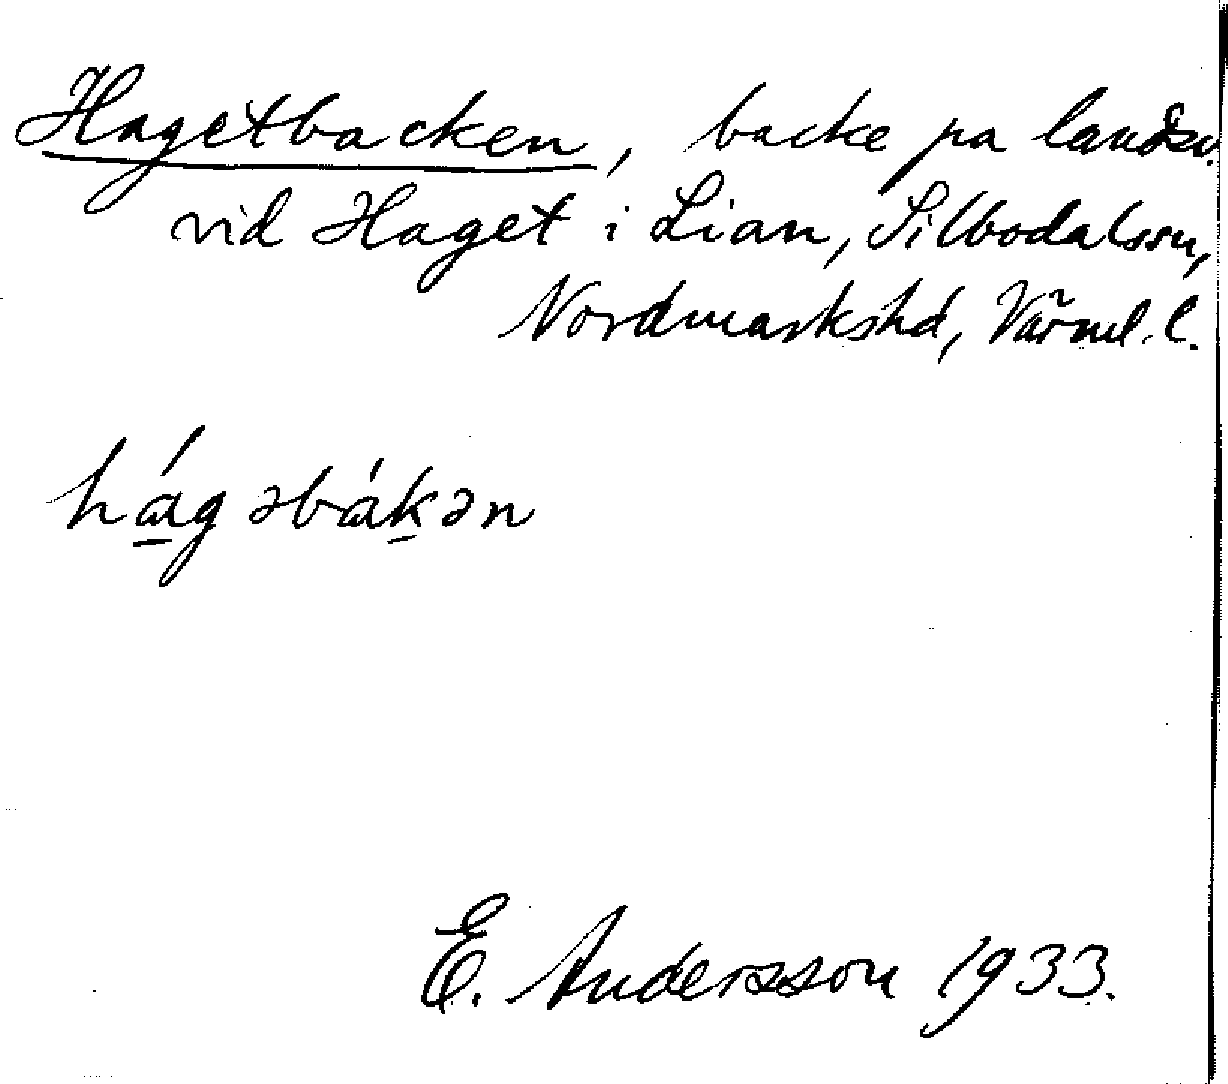 Hagetbacken, backe på landsv.
vid Haget i Lian, Silbodalssn,
Nordmarkshd, Värml. l.
hág əbákən
E. Andersson 1933.